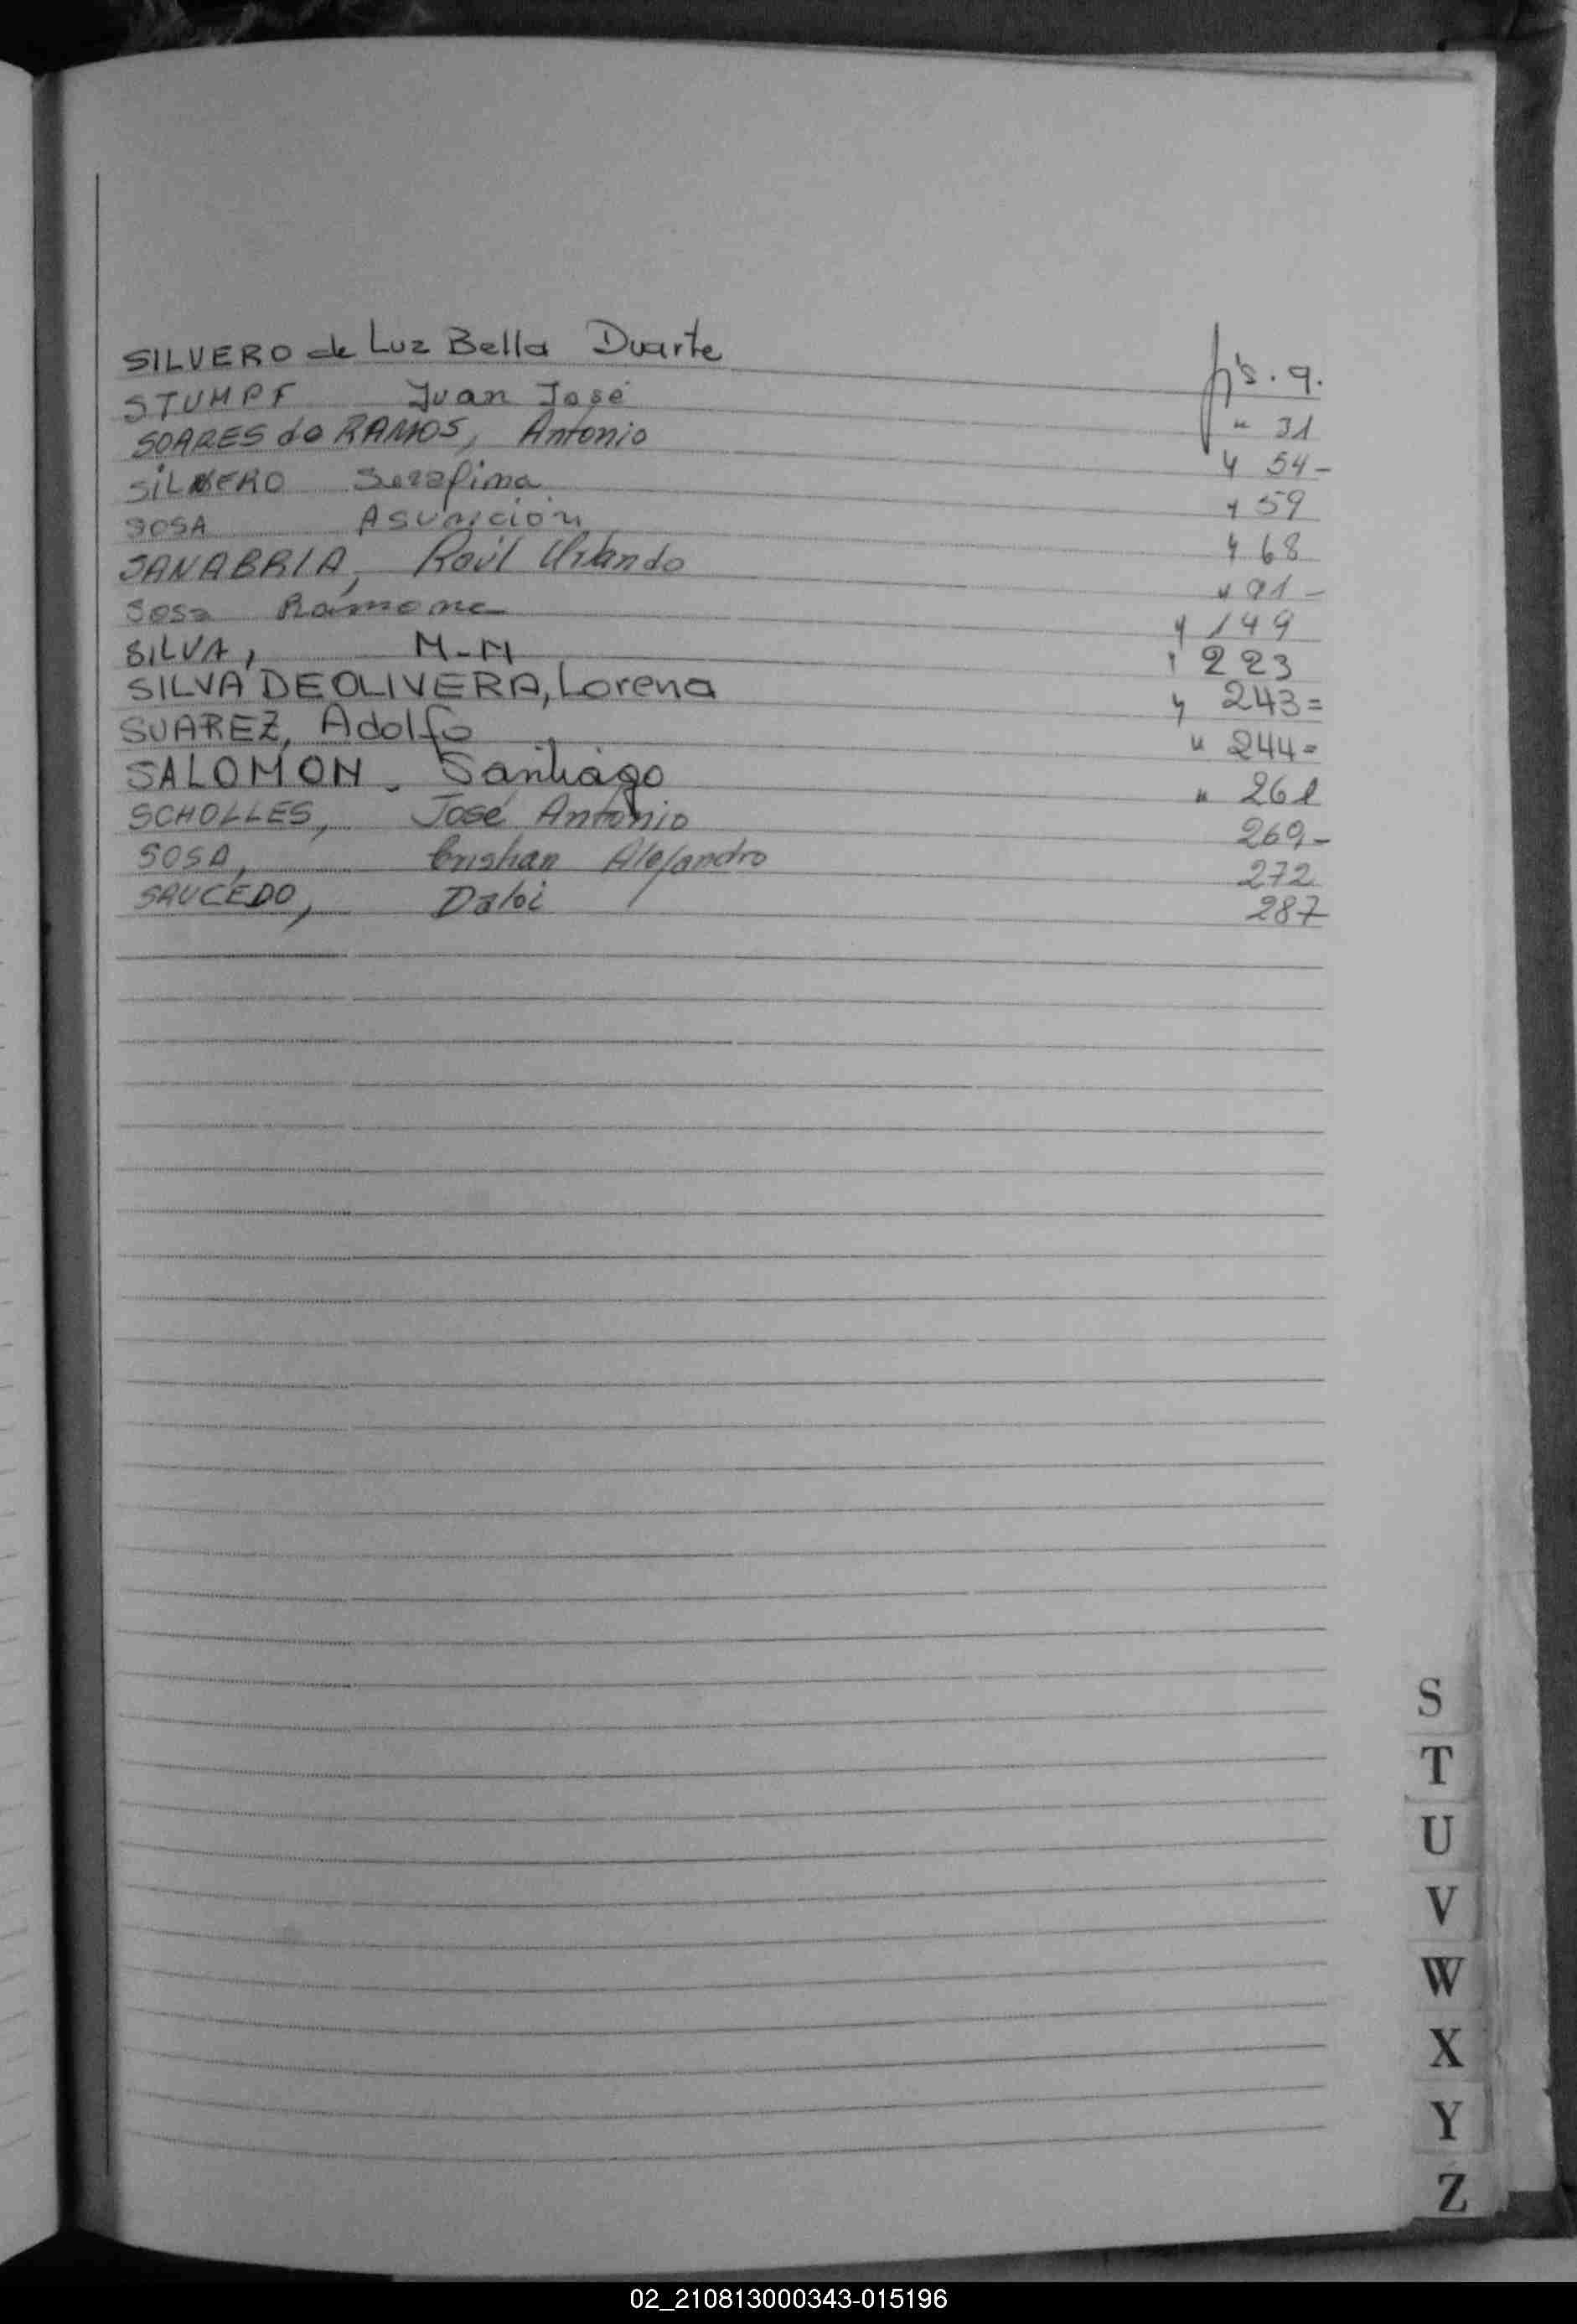 SILVERO de Luz Bella Duarte fjs. 9.
STUMPF Juan José " 31
SOARES do RAMOS, Antonio " 54-
SILVERO Serafina " 59
SOSA Asunción " 68
SANABRIA, Raúl Orlando " 91-
Sosa Ramona " 149
SILVA, M-M " 223
SILVA DE OLIVERA, Lorena " 243=
SUAREZ, Adolfo " 244=
SALOMON. Santiago " 261
SCHOLLES, José Antonio 269-
SOSA, Cristian Alejandro 272
SAUCEDO, 287
S
T
U
V
W
X
Y
Z
02_210813000343-015196